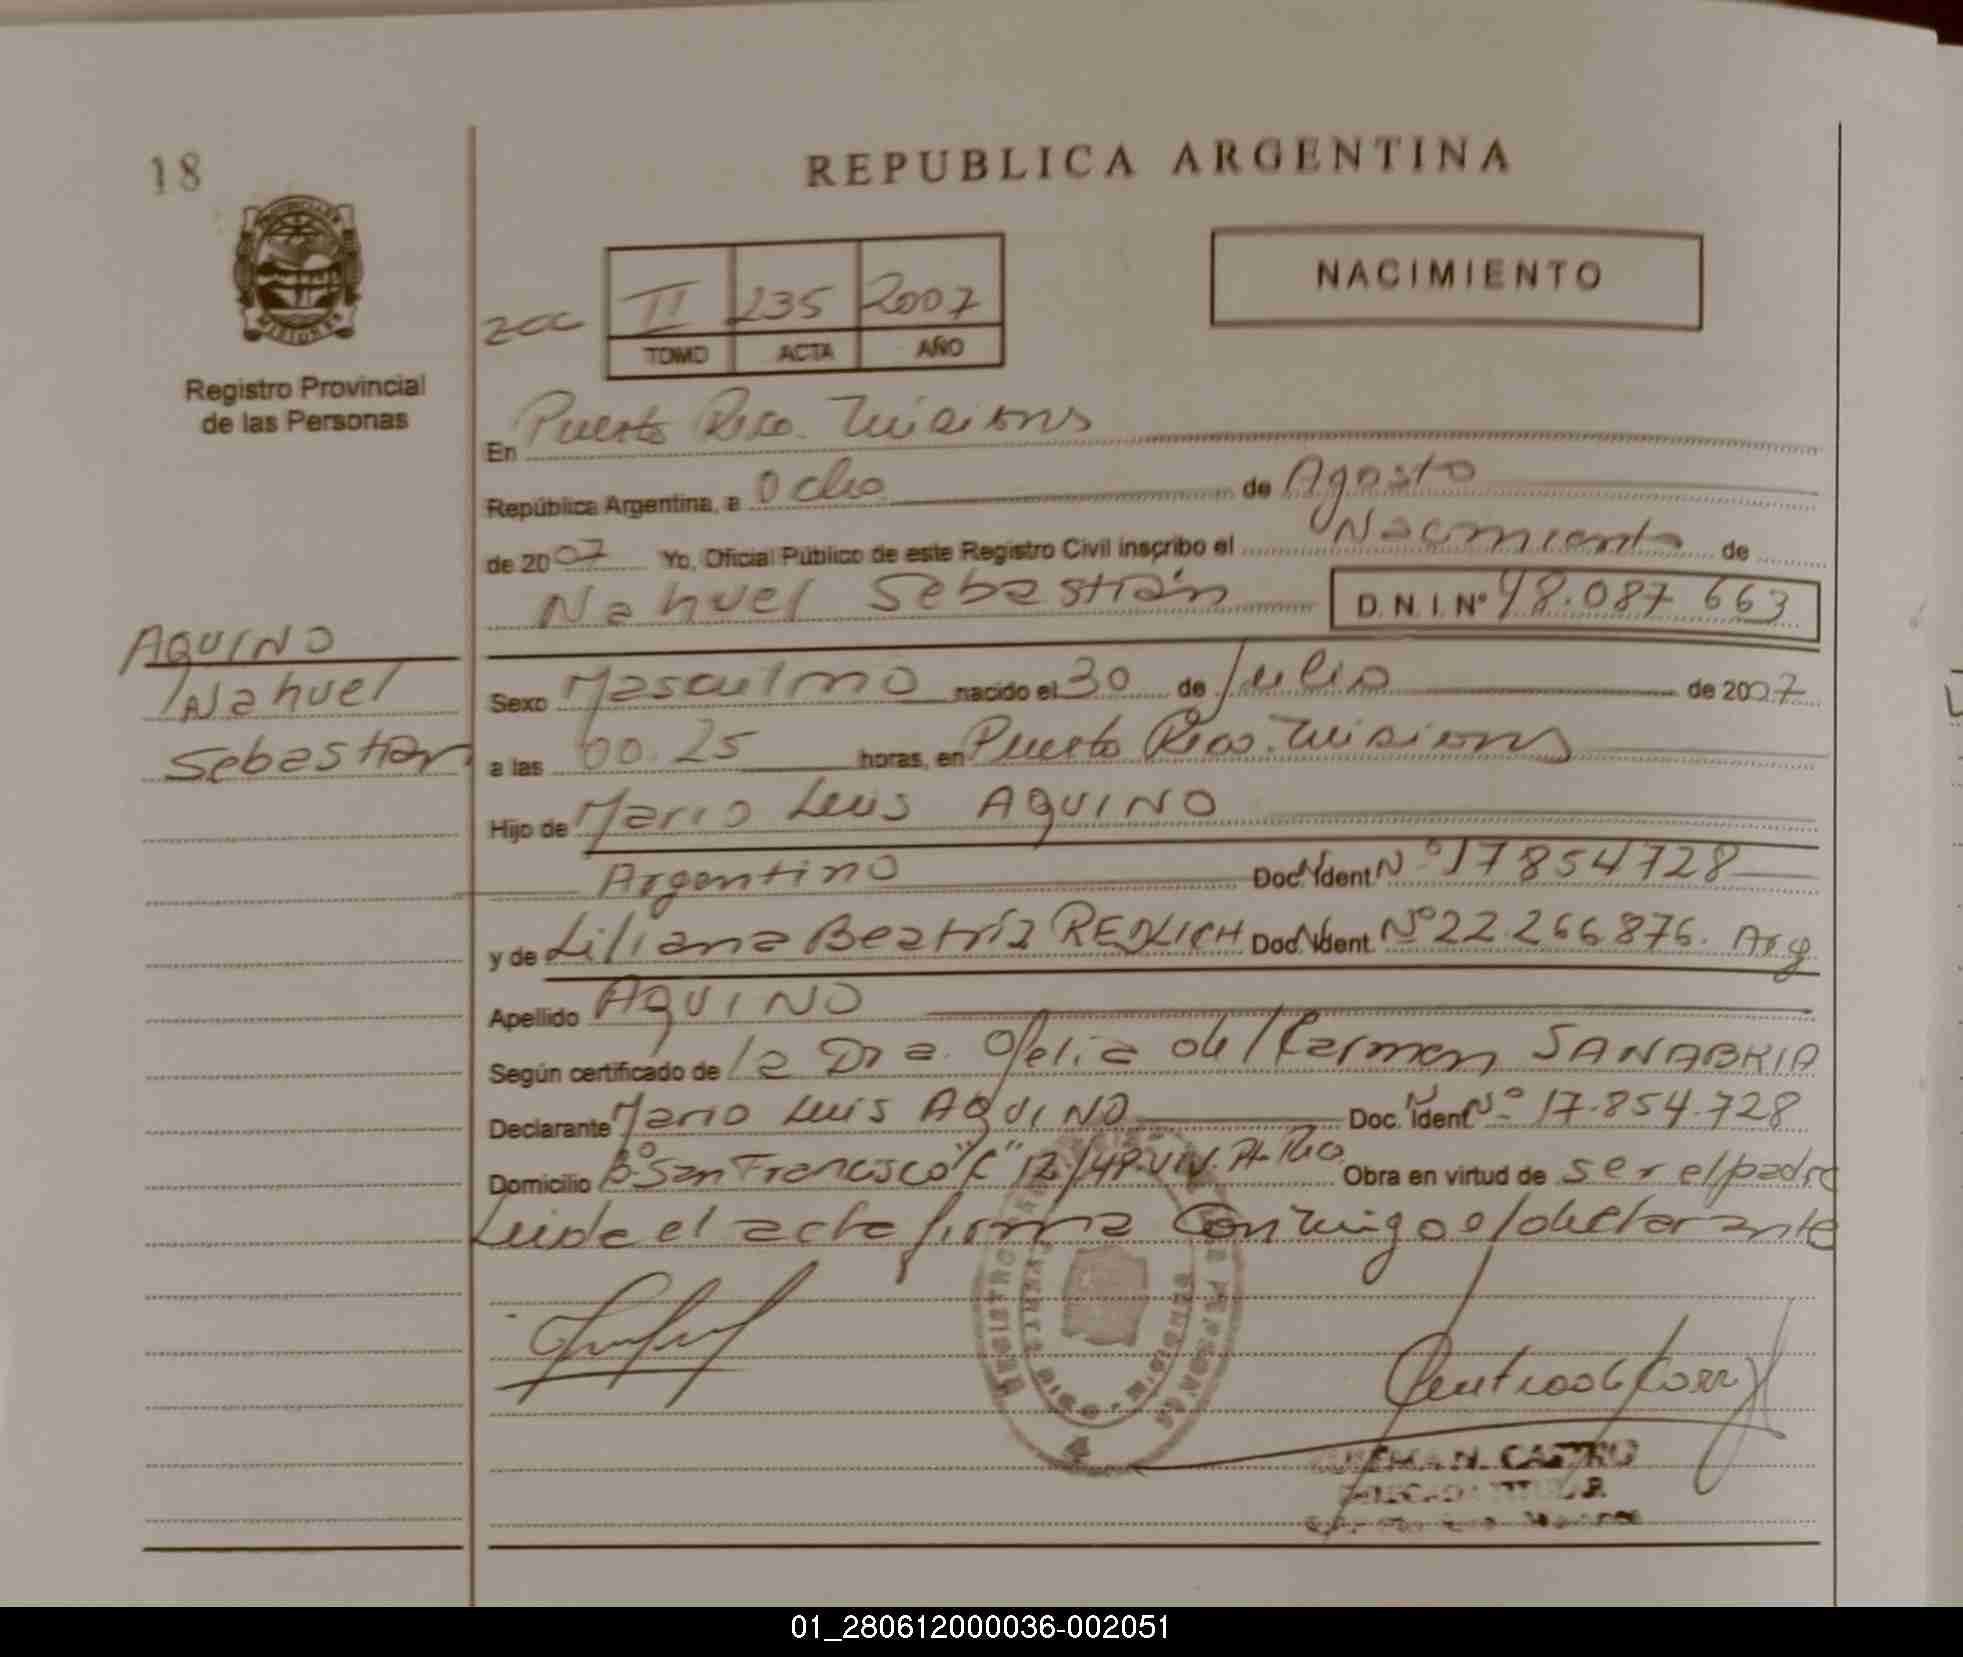 18
REPUBLICA ARGENTINA
NACIMIENTO
II 235 2007
TOMO ACTA AÑO
Registro Provincial
de las Personas
En Puerto Rico. Misiones
República Argentina, a Ocho de Agosto
de 2007 Yo, Oficial Público de este Registro Civil inscribo el Nacimiento de
Nahuel Sebastián D.N.I.Nº 48.087 663
AQUINO
Nahuel
Sebastian
Sexo Masculino nacido el 30 de Julio de 2007
a las 00.25 horas, en Puerto Rico. Misiones
Hijo de Mario Luis AQUINO
Argentino Doc. Ident Nº 17854728
y de Liliana Beatríz REDLICH Doc. Ident. Nº 22.266.876. Arg
Apellido AQUINO
Según certificado de la Dra. Ofelia del Carmen SANABRIA
Declarante Mario Luis AQUINO Doc. Ident Nº 17.854.728
Domicilio Bº San Francisco "C" 12/48.VIV. Pt. Rico Obra en virtud de ser el padre
Leida el acta firma Conmigo el declarante
REGISTRO
MISIONES
4
N. CASTRO
01_280612000036-002051